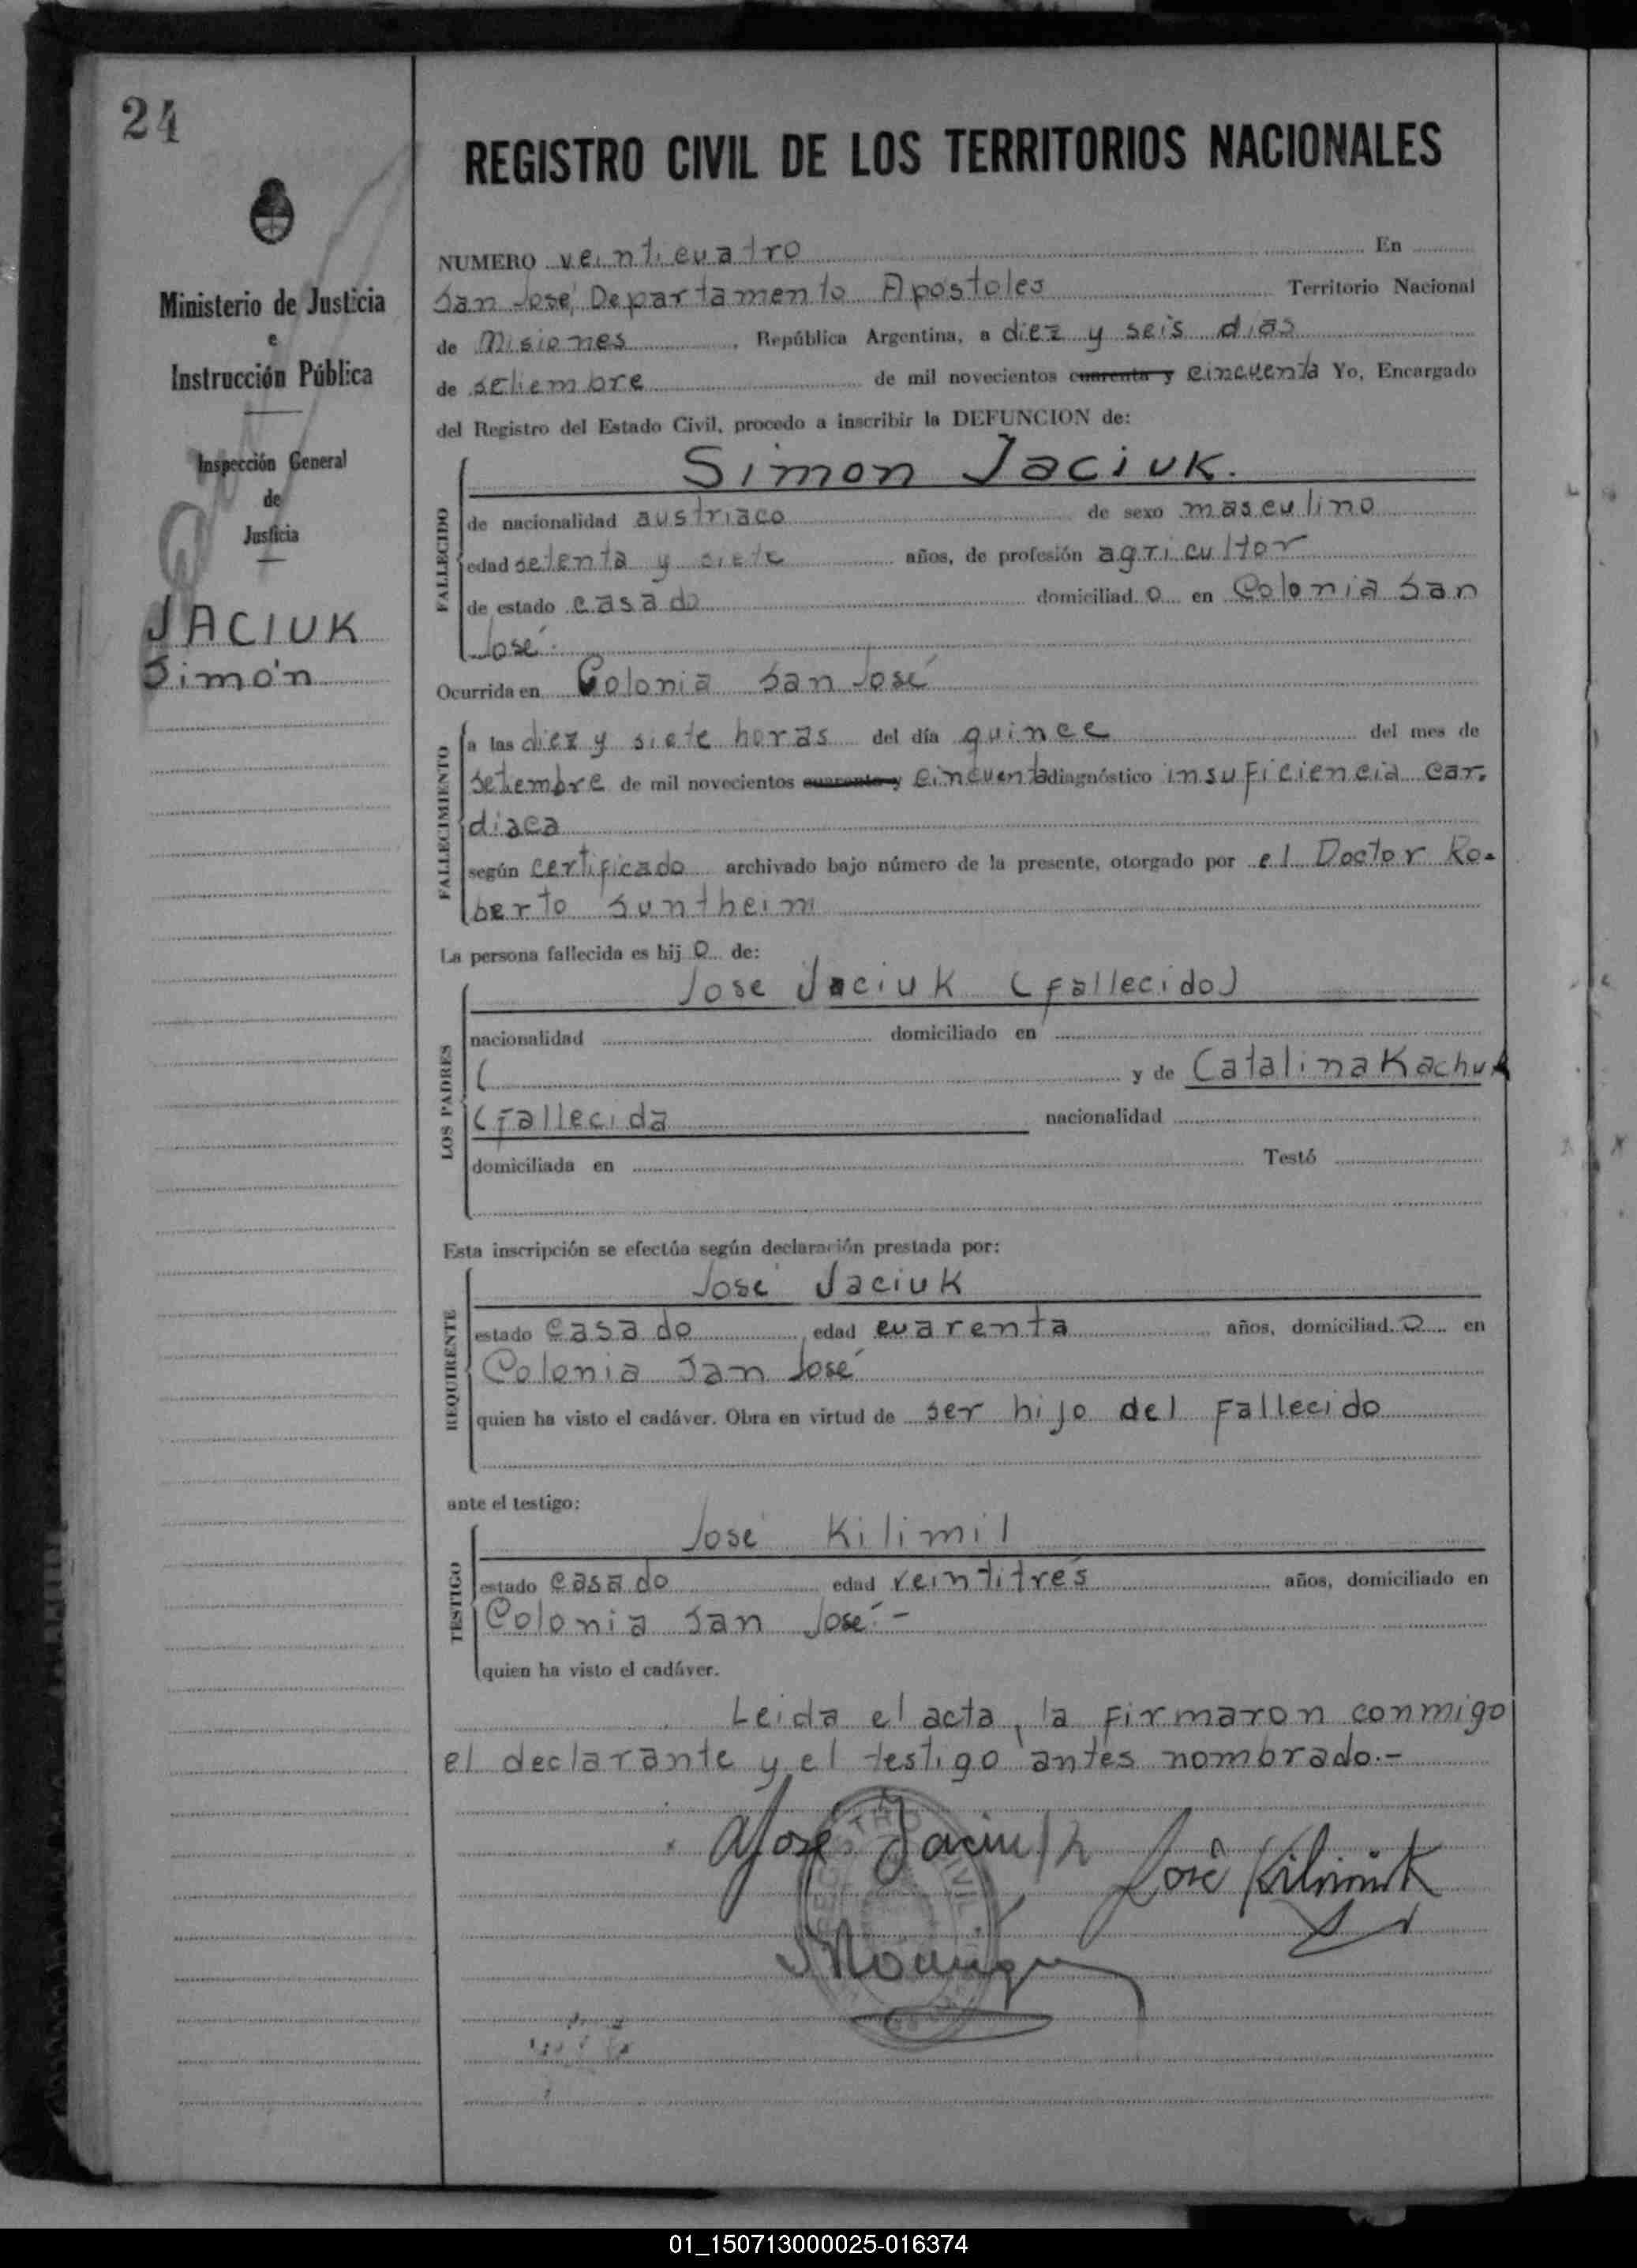 24
Ministerio de Justicia
e
Instrucción Pública
Inspección General
de
Justicia
JACIUK
Simón
REGISTRO CIVIL DE LOS TERRITORIOS NACIONALES
NUMERO veinticuatro En
San José, Departamento Apostoles Territorio Nacional
de Misiones, República Argentina, a diez y seis dias
de setiembre de mil novecientos cuarenta y cincuenta Yo, Encargado
del Registro del Estado Civil, procedo a inscribir la DEFUNCION de:
Simon Jaciuk.
FALLECIDO
de nacionalidad austriaco de sexo masculino
edad setenta y siete años, de profesión agricultor
de estado casado domiciliad o en Colonia San
José.
Ocurrida en Colonia San José
FALLECIMIENTO
a las diez y siete horas del día quince del mes de
Setiembre de mil novecientos cuarenta y cincuenta diagnóstico insuficiencia car.
diaca
según certificado archivado bajo número de la presente, otorgado por el Doctor Ro-
berto Suntheim
La persona fallecida es hij o de:
LOS PADRES
Jose Jaciuk (fallecido)
nacionalidad domiciliado en
( y de Catalina Kachuk
(Fallecida nacionalidad
domiciliada en Testó
Esta inscripción se efectúa según declaración prestada por:
REQUIRENTE
José Jaciuk
estado casado, edad cuarenta años, domiciliad o en
Colonia San José
quien ha visto el cadáver. Obra en virtud de ser hijo del fallecido
ante el testigo:
TESTIGO
José Kilimil
estado casado edad veintitrés años, domiciliado en
Colonia San José.-
quien ha visto el cadáver.
Leida el acta, la firmaron conmigo
el declarante y el testigo antes nombrado.-
José Jaciuk José Kilimink
01_150713000025-016374